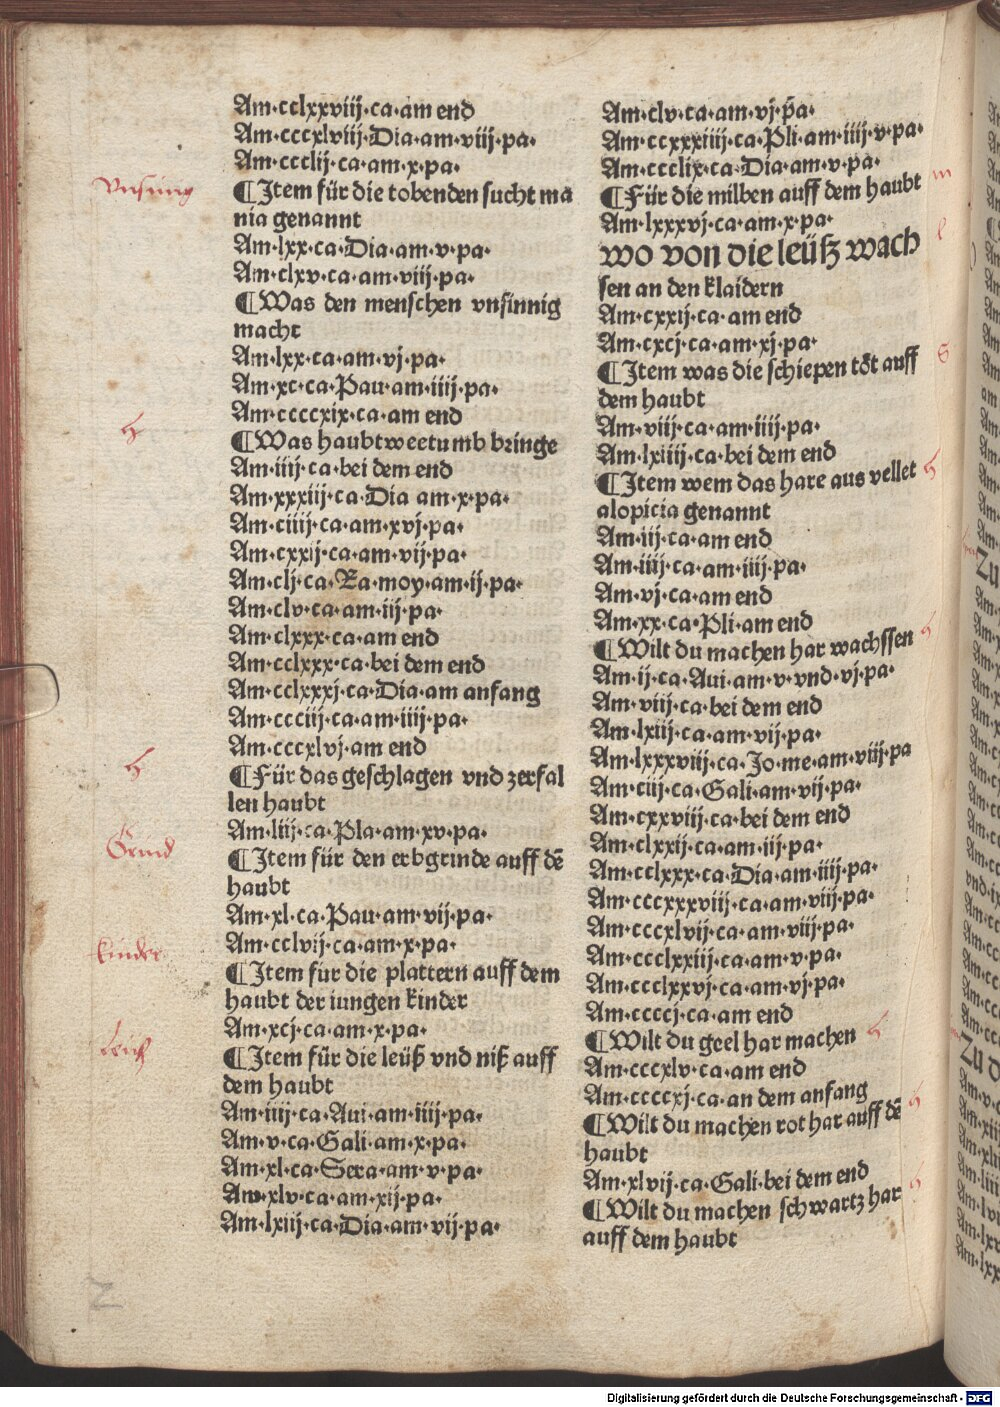 Am·cclxxviij·ca·am end
Am·cccxlviij·Dia·am·viij·pa·
Am·ccclij·ca·am·x·pa·
¶Item für die tobenden sucht ma
nia genannt
Am·lxx·ca·Dia·am·v·pa·
Am·clxv·ca·am·viij·pa·
¶Was den menschen vnsinnig
macht
Am·lxx·ca·am·vj·pa·
Am·xc·ca·Pau·am·iiij·pa·
Am·ccccxix·ca·am end
¶Was haubtweetumb bringe
Am·iiij·ca·bei dem end
Am·xxxiij·ca·Dia am·x·pa·
Am·ciiij·ca·am·xvj·pa·
Am·cxxij·ca·am·vij·pa·
Am·clj·ca·Ra·moy·am·ij·pa·
Am·clv·ca·am·iij·pa·
Am·clxxx·ca·am end
Am·cclxxx·ca·bei dem end
Am·cclxxxj·ca·Dia·am anfang
Am·ccciij·ca·am·iiij·pa·
Am·cccxlvj·am end
¶Für das geschlagen vnd zerfal
len haubt
Am·liij·ca·Pla·am·xv·pa·
¶Item für den erbgrinde auff dē
haubt
Am·xl·ca·Pau·am·vij·pa·
Am·cclvij·ca·am·x·pa·
¶Item für die plattern auff dem
haubt der iungen kinder
Am·xcj·ca·am·x·pa·
¶Item für die leüß vnd niß auff
dem haubt
Am·iiij·ca·Aui·am·iiij·pa·
Am·v·ca·Gali·am·x·pa·
Am·xl·ca·Sera·am·v·pa·
Am·xlv·ca·am·xij·pa·
Am·lxiij·ca·Dia·am·vij·pa·
Am·clv·ca·am·vj·pa·
Am·ccxxxiiij·ca·Pli·am·iiij·v·pa·
Am·ccclix·ca·Dia·am·v·pa·
¶Für die milben auff dem haubt
Am·lxxxvj·ca·am·x·pa·
wo von die leüß wach
sen an den klaidern
Am·cxxij·ca·am end
Am·cxcj·ca·am·xj·pa·
¶Item was die schiepen töt auff
dem haubt
Am·viij·ca·am·iiij·pa·
Am·lxiiij·ca·bei dem end
¶Item wem das hare aus vellet
alopicia genannt
Am·iij·ca·am end
Am·iiij·ca·am·iiij·pa·
Am·vj·ca·am end
Am·xx·ca·Pli·am end
¶Wilt du machen har wachssen
Am·ij·ca·Aui·am·v·vnd·vj·pa·
Am·viij·ca·bei dem end
Am·lxiij·ca·am·vij·pa·
Am·lxxxviij·ca·Jo·me·am·viij·pa
Am·ciij·ca·Gali·am·vij·pa·
Am·cxxviij·ca·bei dem end
Am·clxxij·ca·am·iij·pa·
Am·cclxxx·ca·Dia·am·iiij·pa·
Am·cccxxxviij·ca·am·viij·pa·
Am·cccxlvij·ca·am·viij·pa·
Am·ccclxxiij·ca·am·v·pa·
Am·ccclxxvj·ca·am·vj·pa·
Am·ccccj·ca·am end
¶Wilt du geel har machen
Am·cccxlv·ca·am end
Am·ccccxj·ca·an dem anfang
¶Wilt du machen rot har auff dē
haubt
Am·xlvij·ca·Gali·bei dem end
¶Wilt du machen schwartz har
auff dem haubt
Vnsinnig
h
h
Grind
kinder
m
l
S
h
h
h
h
h
Digitalisierung gefördert durch die Deutsche Forschungsgemeinschaft - DFG